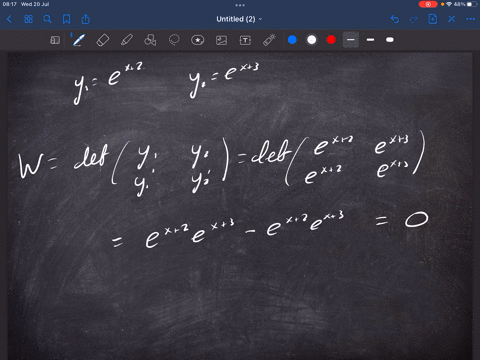 08:17 Wed 20 Jul 48%
Untitled (2)
y₁ = e^{x+2} y₂ = e^{x+3}
W = det ( y₁ y₂ ) = det ( e^{x+2} e^{x+3} )
y₁' y₂' e^{x+2} e^{x+3}
= e^{x+2} e^{x+3} - e^{x+2} e^{x+3} = 0